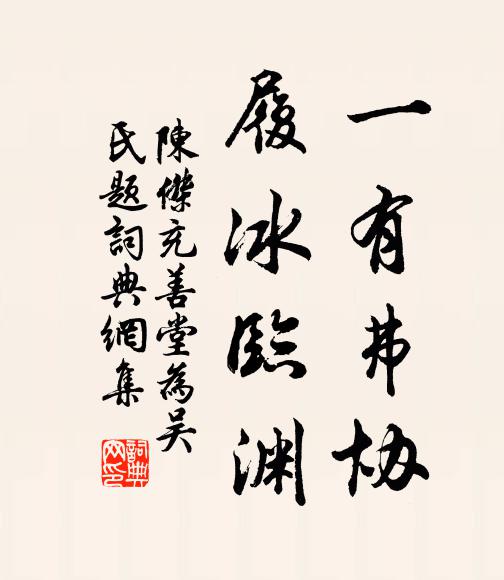 一有弗协
履冰臨渊
陳傑充善堂為吴
氏題詞典網集
詞典網印